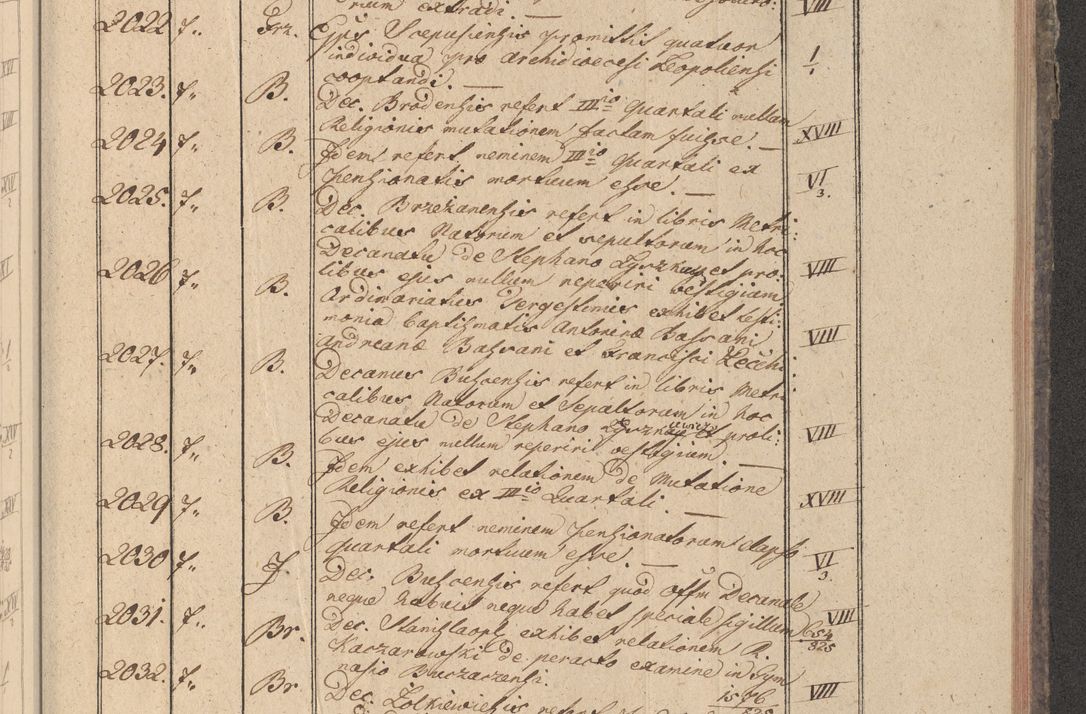 rium extradi. — VIII
2022 7.. Frz. Eppus Scepusiensis promittit quatuor
individua pro Archidioecesi Leopoliensi 1/1
cooptandi. —
2023. 7.. B. Dec. Brodensis refert III io quartali nullam
Religionis mutationem factam fuisse. — XVIII
2024 7.. B. Idem refert neminem III io quartali ex
Pensionatis mortuum esse. — VI/3.
2025. 7.. B. Dec. Brzezanensis refert in libris Metri:
calibus Natorum et sepultorum in hoc
Decanatu de Stephano et pro: VIII
libus ejus nullum reperiri vestigium
2026 7.. B. Ordinariatus Tergestinus exhibet testi:
monia Baptismatis Antoninæ Bassani VIII
Andreanæ Bassani et Francisci Zecchi
2027. 7.. B. Decanus Buscensis refert in libris Metri:
calibus Natorum et Sepultorum in hoc
Decanatu de Stephano et proli: VIII
bus ejus nullum reperiri vestigium —
2028. 7.. B. Idem exhibet relationem de Mutatione
Religionis ex III io Quartali. — XVIII
2029 7.. B. Idem refert neminem Pensionatorum elapso
quartali mortuum esse. — VI/3.
2030 7.. J. Dec. Buscensis refert quod offm Decanale
neque habuit neque habet speciale sigillum VIII
2031. 7.. Br. Dec. Stanislaopl. exhibet relationem R. 654/325
Kaczarowski de peracto examine in Gym
nasio Buczaczensi.
2032. 7.. Br. Dec. Zolkiewiensis refert 1576/325 VIII